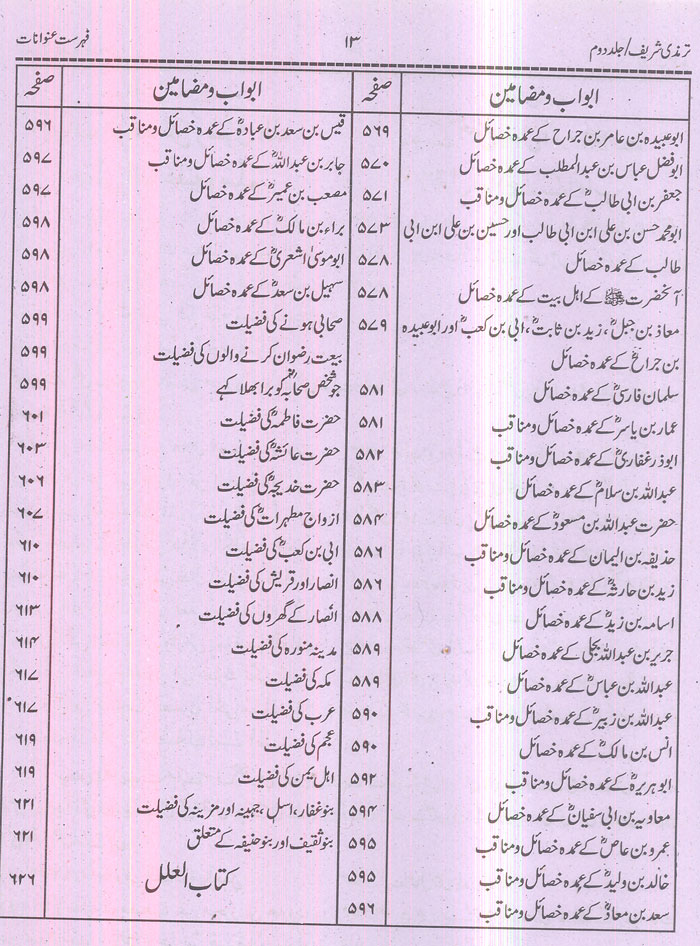 ترمذی شریف/جلد دوم ۱۳ فہرست عنوانات
ابواب و مضامین صفحہ
ابوعبیدہ بن عامر بن جراح کے عمدہ خصائل ۵۶۹
ابوفضل عباس بن عبدالمطلب کے عمدہ خصائل ۵۷۰
جعفر بن ابی طالبؓ کے عمدہ خصائل ومناقب ۵۷۱
ابومحمد حسن بن علی ابن ابی طالب اور حسین بن علی ابن ابی ۵۷۳
طالب کے عمدہ خصائل ۵۷۸
آنحضرت ﷺ کے اہل بیت کے عمدہ خصائل ۵۷۸
معاذ بن جبلؓ، زید بن ثابتؓ، ابی بن کعبؓ اور ابوعبیدہ ۵۷۹
بن جراحؓ کے عمدہ خصائل
سلمان فارسیؓ کے عمدہ خصائل ۵۸۱
عمار بن یاسرؓ کے عمدہ خصائل ومناقب ۵۸۱
ابوذر غفاریؓ کے عمدہ خصائل ومناقب ۵۸۲
عبداللہ بن سلامؓ کے عمدہ خصائل ۵۸۳
حضرت عبداللہ بن مسعودؓ کے عمدہ خصائل ۵۸۴
حذیفہ بن الیمان کے عمدہ خصائل ومناقب ۵۸۶
زید بن حارثہؓ کے عمدہ خصائل ومناقب ۵۸۶
اسامہ بن زیدؓ کے عمدہ خصائل ۵۸۸
جریر بن عبداللہ بجلیؓ کے عمدہ خصائل ۵۸۹
عبداللہ بن عباسؓ کے عمدہ خصائل ۵۸۹
عبداللہ بن زبیرؓ کے عمدہ خصائل ومناقب ۵۹۰
انس بن مالکؓ کے عمدہ خصائل ۵۹۰
ابوہریرہؓ کے عمدہ خصائل ومناقب ۵۹۲
معاویہ بن ابی سفیانؓ کے عمدہ خصائل ۵۹۴
عمرو بن عاصؓ کے عمدہ خصائل ومناقب ۵۹۵
خالد بن ولیدؓ کے عمدہ خصائل ومناقب ۵۹۵
سعد بن معاذؓ کے عمدہ خصائل ومناقب ۵۹۶
ابواب و مضامین صفحہ
قیس بن سعد بن عبادہؓ کے عمدہ خصائل ومناقب ۵۹۶
جابر بن عبداللہؓ کے عمدہ خصائل ومناقب ۵۹۷
مصعب بن عمیرؓ کے عمدہ خصائل ۵۹۷
براء بن مالکؓ کے عمدہ خصائل ۵۹۸
ابوموسیٰ اشعریؓ کے عمدہ خصائل ۵۹۸
سہیل بن سعدؓ کے عمدہ خصائل ۵۹۸
صحابی ہونے کی فضیلت ۵۹۹
بیعت رضوان کرنے والوں کی فضیلت ۵۹۹
جو شخص صحابہؓ کو برا بھلا کہے ۵۹۹
حضرت فاطمہؓ کی فضیلت ۶۰۱
حضرت عائشہؓ کی فضیلت ۶۰۳
حضرت خدیجہؓ کی فضیلت ۶۰۶
ازواج مطہراتؓ کی فضیلت ۶۰۷
ابی بن کعبؓ کی فضیلت ۶۱۰
انصار اور قریش کی فضیلت ۶۱۰
انصار کے گھروں کی فضیلت ۶۱۳
مدینہ منورہ کی فضیلت ۶۱۴
مکہ کی فضیلت ۶۱۷
عرب کی فضیلت ۶۱۷
عجم کی فضیلت ۶۱۹
اہل یمن کی فضیلت ۶۱۹
بنوغفار، اسلم، جہینہ اور مزینہ کی فضیلت ۶۲۱
بنوثقیف اور بنوحنیفہ کے متعلق ۶۲۱
کتاب العلل ۶۲۶